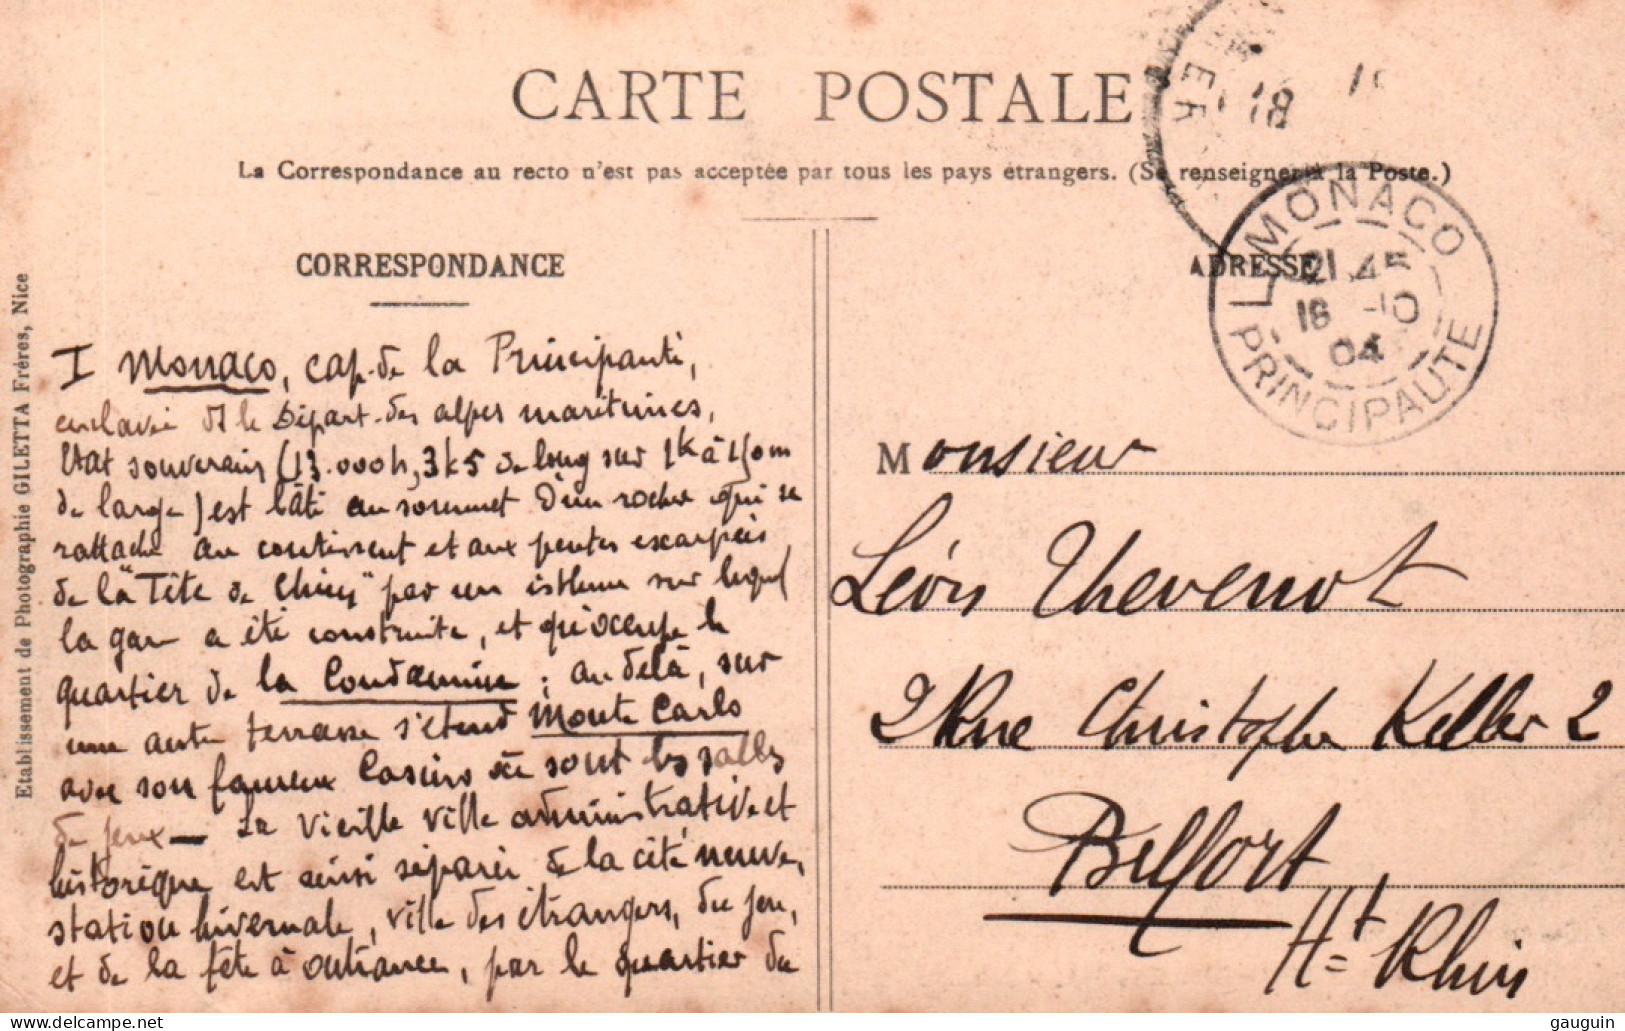 CARTE POSTALE
La Correspondance au recto n'est pas acceptée par tous les pays étrangers. (Se renseigner à la Poste.)
CORRESPONDANCE
ADRESSE
MONACO
21 45
16 -10
04
PRINCIPAUTE
18
Etablissement de Photographie GILETTA Frères, Nice
I Monaco, cap. de la Principauté,
enclavée ds le Départ. des alpes maritimes,
Etat souverain (13.000h, 3k5 de long sur 1k à 150m
de large) est bâti au sommet d'un rocher qui se
rattache au continent et aux pentes escarpées
de la "Tête de Chien" par un isthme sur lequel
la gare a été construite, et qui occupe le
quartier de la Condamine ; au delà, sur
une autre terrasse s'étend Monte Carlo
avec son fameux Casino où sont les salles
de jeux — La vieille ville administrative et
historique est ainsi séparée de la cité neuve,
station hivernale, ville des étrangers, du jeu,
et de la fête à outrance, par le quartier du
Monsieur
Léon Thevenot
2 Rue Christophe Keller 2
Belfort
Ht = Rhin
© Delcampe.net
gauguin